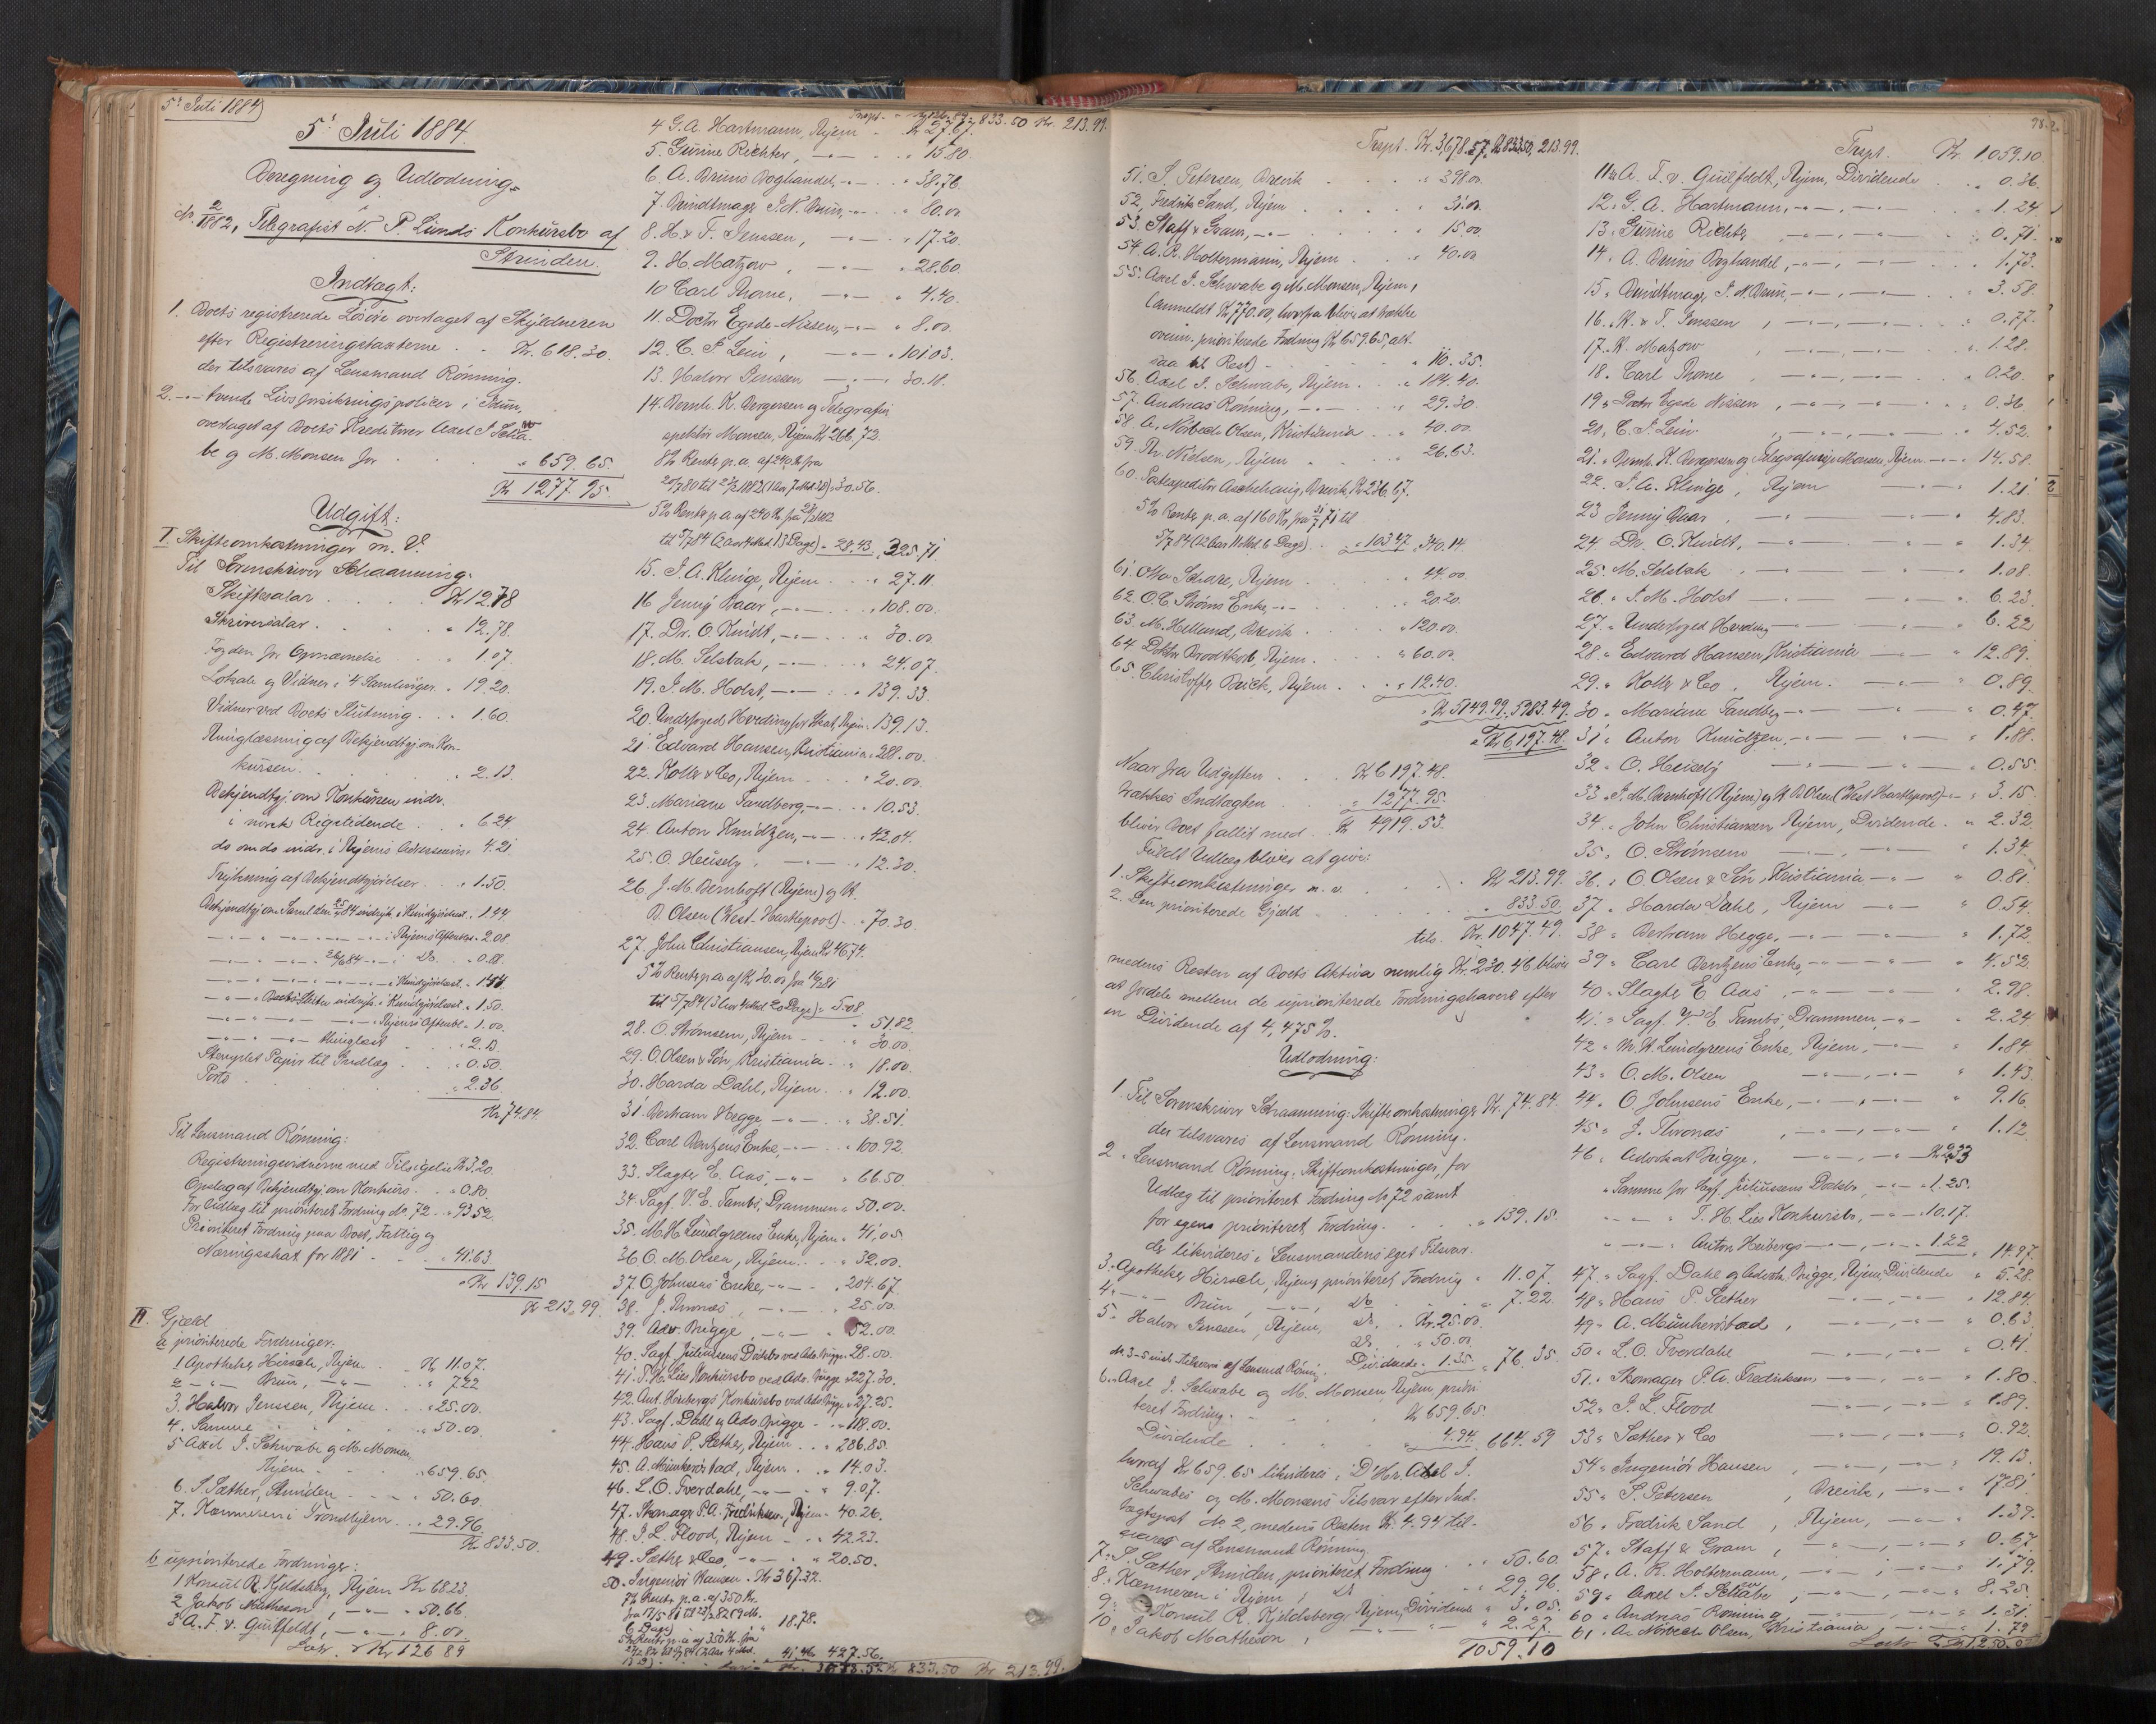 5' Juli 1884)
5' Juli 1884.
Beregning og Udlodning
Nr. 2/1882, Telegrafist N. P. Lunds Konkursbo af
Strinden.
Indtægt:
1. Boets registrerede Løsøre overtaget af Skyldneren
efter Registreringstaxterne . . Kr. 618.30.
der tilsvares af Lensmand Rönning.
2. -"- tvende Livsforsikringspolicer i Idun,
overtaget af Boets Kreditorer Axel J. Schwa-
be og M. Monsen for . . " 659.65.
Kr 1277.95.
Udgift:
I. Skifteomkostninger m. V.
Til Sorenskriver Schaanning:
Skiftesalær . . . Kr 12.78
Skriversalær . . . " 12.78.
Fogden for Opnævnelse . . " 1.07.
Lokale og Vidner i 4 Samlinger . " 19.20.
Vidner ved Boets Slutning . . . 1.60.
Thinglæsning af Bekjendtgj. om Kon-
kursen . . . " 2.13.
Bekjendtgj. om Konkursen indr.
i norsk Rigstidende . . " 6.24.
do om do indr. i Thjems Adresseavis " 4.21.
Trykning af Bekjendtgjørelser . . " 1.50.
Bekjendtgj om Saml. den 25/ 84 indrykt i Kundgjörelsest. " 1.44
-"- -"- -"- i Thjems Aftenbl. " 2.08.
-"- -"- 26/6 84 -"- i Do. . . " 0.88.
-"- -"- -"- i Kundgjörelsest. " 1.44.
-"- -"- Boets Slutn. indryk. i Kundgjörelsest. " 1.50.
-"- -"- -"- Thjems Aftenbl. " 1.00.
-"- -"- thinglæst . " 2.13.
Stemplet Papir til Indlæg . . " 0.50.
Porto . . . " 2.36
Kr. 74.84
Til Lensmand Rönning:
Registreringsvidnerne med Tilsigelse Kr 3.20
Opslag af Bekjendtgj om Konkurs . . " 0.80.
For Udlæg til prioriteret Fordring No 72 . . " 93.52
Prioriteret Fordring paa Boet, Fattig og
Næringsskat for 1881 . . " 41.63
" Kr 139.15
Kr 213.99.
II. Gjæld
a prioriterede Fordringer.
1 Apotheker Hirsch, Thjem . . Kr 11.07.
2 -"- Bruun, -"- . . " 7.22
3. Halvor Jenssen, Thjem . . " 25.00.
4. Samme . . . " 50.00.
5 Axel J. Schwabe og M. Monsen
Thjem . . . " 659.65.
6. S. Sæther, Strinden . . " 50.60.
7. Kæmneren i Trondhjem . . " 29.96.
Kr 833.50.
b uprioriterede Fordringer:
1 Konsul R. Kjeldsberg, Thjem Kr 68.23.
2 Jakob Matheson, -"- . 50.66.
3 A. F. v. Gulfeldt, -"- . " 8.00.
Latr. Kr 126 89
Trspt. Kr 126.89. 833.50 Kr. 213.99.
4 G. A. Hartmann, Thjem . . Kr 27.67.
5. Gurine Richter, -"- . . " 15.80.
6. A. Bruns Boghandel, -"- . . " 38.76.
7. Bundtmager J. N. Bruun, -"- . . 80.00
8. H. & F. Jenssen, -"- . . 17.20.
9. H. Matzow, -"- . " 28.60.
10 Carl Thome, -"- . " 4.40.
11. Doctor Egede-Nissen, -"- . " 8.00.
12. C. J. Lein, -"- . " 101 03.
13. Halvor Jenssen -"- . " 30.18.
14. Bernh. K. Bergersen og Telegrafin-
spektör Monsen, Thjem Kr 266,72.
8% Rente p. a. af 240 Kr fra
20/7 80 til 23/2 1882 (1 Aar 7 Md 3 D) " 30.56.
5% Rente p. a. af 240 Kr. fra 23/2 1882
til 5/7 84 (2 Aar 4 Md 13 Dage) . " 28.43 . 325.71
15. J. A. Klinge, Thjem . . " 27.11
16 Jenny Baar, -"- . . . 108.00.
17. Dr. O. Knudt, -"- . . " 30.00.
18. M. Selsbak, -"- . . " 24.07.
19. J. M. Holst, -"- . . " 139.33.
20. Underfoged Hverding for Skat, Thjem . 139.13.
21 Edvard Hansen, Kristiania . 288.00.
22. Koller & Co, Thjem . . " 20.00.
23. Mariane Tandberg, -"- . . 10.53.
24. Anton Knudtzen, -"- . . 42.04.
25. O. Heiseldg, -"- . . 12.30.
26. J. M. Bernhoft (Thjem) og H.
B. Olsen (West-Hartlepool) . . 70.30.
27. John Christiansen, Thjem Kr 46.74.
5% Rente p. a. af Kr 30.00 fra 14/2 81
til 5/7 84 (3 Aar 4 Md 20 Dage) " 5.08.
" 51.82
28. O. Strömsem, Thjem . . " 30.00.
29. O. Olsen & Sön, Kristiania . " 18.00.
30. Harda Dahl, Thjem . . . 12.00.
31. Bertram Hegge, -"- . . " 38.51.
32. Carl Bentzens Enke, -"- . . . 100.92.
33. Slagter E. Aas, -"- . " 66.50.
34 Sagf. V. E. Tambs, Drammen " 50.00.
35. M. H. Lundgreens Enke, Thjem . 41.05.
36 O. M. Olsen, Thjem . . . 32.00.
37. O. Johnsens Enke, -"- . . 204.67.
38. J. Thronæs, -"- . 25.00.
39. Adv. Brigge, -"- . 52.00.
40. Sagf. Juliussens Dødsbo ved Adv. Brigge . 28.00.
41. T. H. Lies Konkursbo ved Adv. Brigge . 227.30.
42. Ant. Heibergs Konkursbo ved Adv. Brigge " 27.25.
43. Sagf. Dahl og Adv. Brigge . . 118.00.
44. Hans P. Sæther, Thjem . . . 286.85.
45. A. Munkeröstad, Thjem . . " 14.03.
46. L. O. Tverdahl, -"- . " 9.07.
47. Skomager P. A. Fredriksen, Thjem . 40.26.
48. J. L. Flood, Thjem . . . 42.23.
49. Sæther & Co, -"- . . " 20.50.
50. Ingeniör Hansen . Kr 367.32.
7% Rente p. a. af 350 Kr.
fra 17/5 81 til 23/2 82 (9 M.
6 Dage) . . " 18.78.
5% Rente p. a. af 350 Kr. fra
23/2 82 til 5/7 84 (2 Aar 4 Md.
13 D) . . " 41.46 427.56.
Kr. 3678.57 Kr 833.50 Kr 213.99.
Trspt. Kr. 3,678.57, Kr 833.50, 213.99.
51. S. Petersen, Brevik . . . " 398.00.
52. Fredrik Sand, Thjem . . . 31.00.
53. Staff & Gram, -"- . . . 15.00.
54. A. R. Holtermann, Thjem . . " 40.00
55. Axel J. Schwabe og M. Monsen, Thjem,
(anmeldt Kr 770.00, hvorfra bliver at trække
ovenn. prioriterede Fordring Kr 659.65, alt-
saa til Rest) . . . " 110.35.
56. Axel J. Schwabe, Thjem . . . 184.40.
57. Andreas Rönning, -"- . . " 29.30.
58. A. Norbech Olsen, Kristiania . . " 40.00.
59. Th. Nielsen, Thjem . . . 26.63.
60. Postexpeditör Aschehoug, Brevik, Kr 236.67.
5% Rente p. a. af 160 Kr fra 31/7 71 til
5/7 84 (12 Aar 11 Md. 6 Dage) . . " 103.47 . 340.14.
61. Otto Schare, Thjem . . . " 44.00.
62. O. C. Ströms Enke, -"- . . . 20.20.
63. M. Helland, Brevik . . . " 120.00.
64 Doktor Brodtkorb, Thjem . . . " 60.00.
65. Christoffer Brick, Thjem . . . " 12.40.
" Kr 5149.99. 5983.49.
" Kr 6,197.48.
Naar fra Udgiften . . . Kr 6197.48.
trækkes Indtægten . . . " 1277.95.
bliver Boet fallit med . Kr 4919.53.
Fuldt Udlæg bliver at give:
1. Skifteomkostninger m. v. . . . Kr 213.99.
2. Den prioriterede Gjæld . . . " 833.50.
tils. Kr. 1047.49.
medens Resten af Boets Aktiva nemlig Kr. 230.46 bliver
at fordele mellem de uprioriterede Fordringshavere efter
en Dividende af 4,475 %.
Udlodning:
1. Til Sorenskriver Schaanning: Skifteomkostninger Kr. 74.84.
der tilsvares af Lensmand Rönning.
2 " Lensmand Rönning: Skifteomkostninger, for
Udlæg til prioriteret Fordring No 72 samt
for egen prioriteret Fordring . . . " 139.15.
der likvideres i Lensmandens eget Tilsvar.
3. Apotheker Hirsch, Thjem, prioriteret Fordring " 11.07.
4. -"- Bruun, -"-, Do . . " 7.22.
5. Halvor Jenssen, Thjem, Do. . Kr. 25.00.
Do . " 50.00.
Dividende . 1.35 " 76.35.
No 3-5 incl. tilsvares af Lensmd Rönning.
6. Axel J. Schwabe og M. Monsen, Thjem, priori-
teret Fordring . . . Kr 659.65
Dividende . . . " 4.94. 664.59
hvoraf Kr 659.65 likvideres i D'Hr. Axel J.
Schwabes og M. Monsens Tilsvar efter Ind-
tægtspost No 2, medens Resten Kr. 4.94 til-
svares af Lensmand Rönning.
7. S. Sæther, Strinden, prioriteret Fordring . . 50.60.
8. Kæmneren i Thjem, Do . . " 29.96.
9. Konsul R. Kjeldsberg, Thjem, Dividende " 3.05.
10. Jakob Matheson, -"- -"- " 2.27.
1059.10
98.
Trspt. Kr 1,059.10.
11 A. F. v. Gulfeldt, Thjem, Dividende . . " 0.36.
12. G. A. Hartmann, -"-, -"- . . " 1.24.
13. Gurine Richter, -"-, -"- . . " 0.71.
14. A. Bruns Boghandel, -"-, -"- . . . 1.73.
15. Bundtmager J. N. Bruun, -"-, -"- . . " 3.58.
16. H. & F. Jenssen, -"-, -"- . . " 0.77.
17. H. Matzow, -"-, -"- . " 1.28.
18. Carl Thome, -"-, -"- . " 0.20.
19. Doctor Egede Nissen, -"-, -"- . " 0.36.
20. C. J. Lein, -"-, -"- " 4.52.
21. Bernh. K. Bergersen og Telegrafinsp. Monsen, Thjem -"- " 14.58.
22. J. A. Klinge, Thjem -"- " 1.21
23 Jenny Baar, -"- -"- " 4.83.
24. Dr. O. Knudt, -"- -"- " 1.34.
25. M. Selsbak -"- -"- " 1.08.
26. J. M. Holst -"- -"- " 6.23.
27. Underfoged Hverding -"- -"- " 6.22
28. Edvard Hansen, Kristiania -"- " 12.89.
29. Koller & Co, Thjem. -"- " 0.89.
30 " Mariane Tandberg -"- -"- " 0.47.
31 " Anton Knudtzen, -"- -"- " 1.88.
32 " O. Heiseldg -"- -"- " 0.55.
33 " J. M. Bernhoft (Thjem) og H. B. Olsen (West Hartlepool) -"- " 3.15.
34. John Christiansen Thjem, Dividende . " 2.32.
35. O. Strömsem -"-, -"- " 1.34.
36. " O. Olsen & Sön, Kristiania -"- " 0.81.
37 " Harda Dahl, Thjem -"- " 0.54.
38 " Bertram Hegge, -"- -"- " 1.72.
39 " Carl Bentzens Enke, -"- -"- " 4.52.
40 " Slagter E. Aas, -"- -"- " 2.98.
41. " Sagf. V. E. Tambs, Drammen, -"- " 2.24
42 " M. H. Lundgreens Enke, Thjem, -"- " 1.84.
43 " O. M. Olsen -"-, -"- " 1.43.
44 " O. Johnsens Enke, -"-, -"- " 9.16.
45 " J. Thronæs, -"-, -"- " 1.12.
46. Advokat Brigge, -"-, -"- Kr 2.33
" Samme for Sagf. Juliussens Dødsbo, -"- " 1.25.
" -"- " T. H. Lies Konkursbo, -"- " 10.17.
" -"- " Anton Heibergs -"-, -"- " 1.22 " 14.97.
47. " Sagf. Dahl og Advok. Brigge, Thjem, Dividende " 5.28.
48 " Hans P. Sæther -"-, -"- " 12.84.
49 " A. Munkeröstad, -"-, -"- " 0.63.
50 " L. O. Tverdahl -"-, -"- " 0.41.
51 " Skomager P. A. Fredriksen, -"-, -"- " 1.80.
52 " J. L. Flood -"-, -"- " 1.89.
53 " Sæther & Co -"-, -"- " 0.92.
54 " Ingeniör Hansen, -"-, -"- " 19.13.
55 " S. Petersen, Brevik, -"- " 17.81.
56 . Fredrik Sand, Thjem, -"- " 1.39.
57 " Staff & Gram, -"-, -"- " 0.67.
58 " A. R. Holtermann, -"-, -"- " 1.79.
59 " Axel J. Schwabe, -"-, -"- " 8.25.
60 " Andreas Rönning, -"-, -"- " 1.31.
61 " A. Norbech Olsen, Kristiania, -"- " 1.79
Latr.